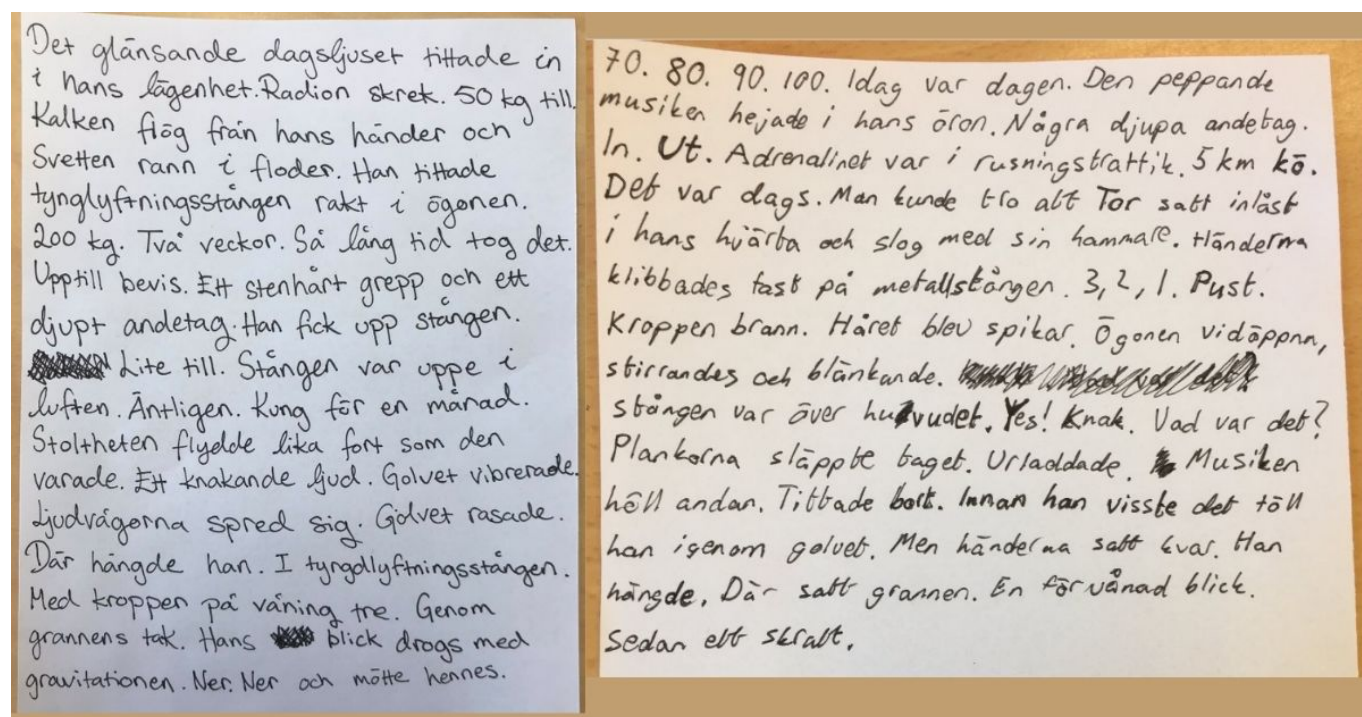 Det glänsande dagsljuset tittade in
i hans lägenhet. Radion skrek. 50 kg till.
Kalken flög från hans händer och
Svetten rann i floder. Han tittade
tynglyftningsstången rakt i ögonen.
200 kg. Två veckor. Så lång tid tog det.
Upptill bevis. Ett stenhårt grepp och ett
djupt andetag. Han fick upp stången.
Lite till. Stången var uppe i
luften. Äntligen. Kung för en månad.
Stoltheten flydde lika fort som den
varade. Ett knakande ljud. Golvet vibrerade.
Ljudvågorna spred sig. Golvet rasade.
Där hängde han. I tyngdlyftningsstången.
Med kroppen på våning tre. Genom
grannens tak. Hans blick drogs med
gravitationen. Ner. Ner och mötte hennes.
70. 80. 90. 100. Idag var dagen. Den peppande
musiken hejade i hans öron. Några djupa andetag.
In. Ut. Adrenalinet var i rusningstraffik. 5 km kö.
Det var dags. Man kunde tro att Tor satt inlåst
i hans hjärta och slog med sin hammare. Händerna
klibbades fast på metallstången. 3, 2, 1. Pust.
Kroppen brann. Håret blev spikar. Ögonen vidöppna,
stirrandes och blänkande.
stången var över huvudet. Yes! Knak. Vad var det?
Plankorna släppte taget. Urladdade. Musiken
höll andan. Tittade bort. Innan han visste det föll
han igenom golvet. Men händerna satt kvar. Han
hängde. Där satt grannen. En förvånad blick.
Sedan ett skratt.